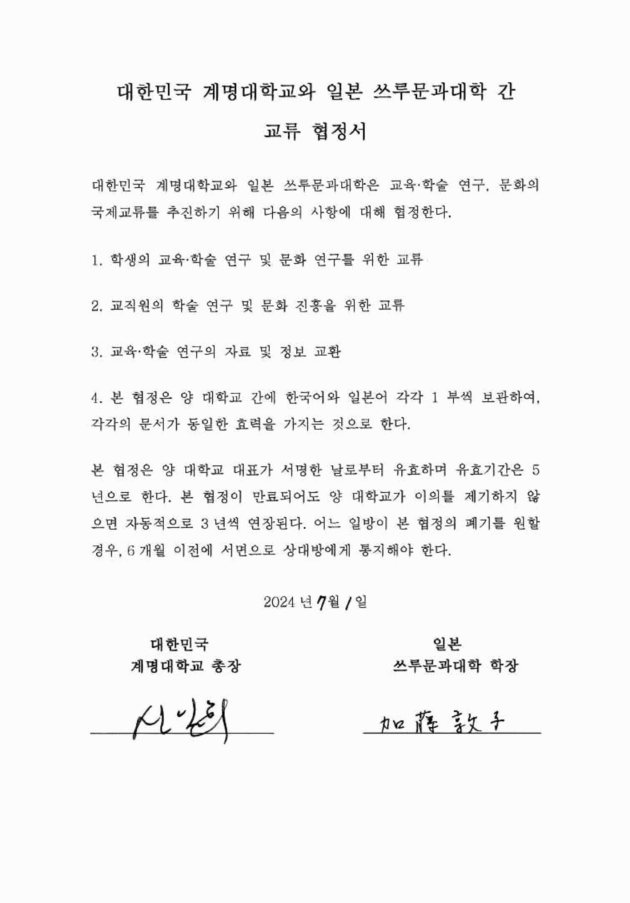 대한민국 계명대학교와 일본 쓰루문과대학 간
교류 협정서
대한민국 계명대학교와 일본 쓰루문과대학은 교육·학술 연구, 문화의
국제교류를 추진하기 위해 다음의 사항에 대해 협정한다.
1. 학생의 교육·학술 연구 및 문화 연구를 위한 교류
2. 교직원의 학술 연구 및 문화 진흥을 위한 교류
3. 교육·학술 연구의 자료 및 정보 교환
4. 본 협정은 양 대학교 간에 한국어와 일본어 각각 1 부씩 보관하여,
각각의 문서가 동일한 효력을 가지는 것으로 한다.
본 협정은 양 대학교 대표가 서명한 날로부터 유효하며 유효기간은 5
년으로 한다. 본 협정이 만료되어도 양 대학교가 이의를 제기하지 않
으면 자동적으로 3 년씩 연장된다. 어느 일방이 본 협정의 폐기를 원할
경우, 6 개월 이전에 서면으로 상대방에게 통지해야 한다.
2024 년 7월 1일
대한민국
계명대학교 총장
일본
쓰루문과대학 학장
신일희
加藤敦子